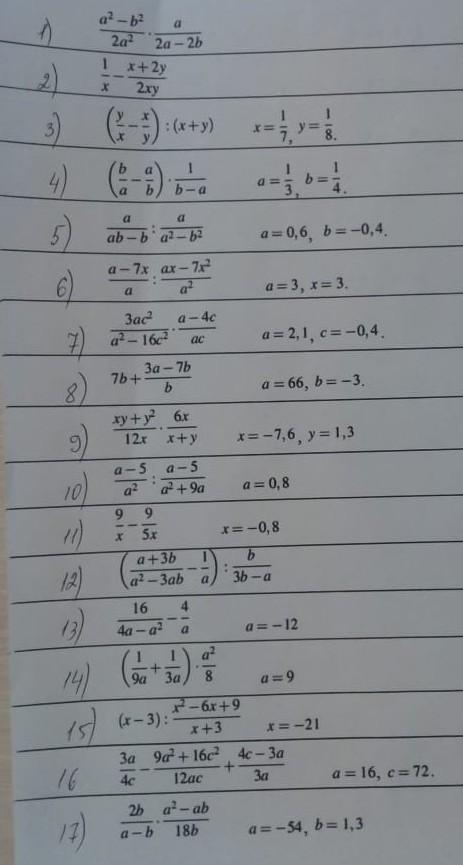 1) \frac{a^2-b^2}{2a^2} \cdot \frac{a}{2a-2b}
2) \frac{1}{x} - \frac{x+2y}{2xy}
3) \left(\frac{y}{x} - \frac{x}{y}\right) : (x+y)  x = \frac{1}{7}, y = \frac{1}{8}.
4) \left(\frac{b}{a} - \frac{a}{b}\right) \cdot \frac{1}{b-a}  a = \frac{1}{3}, b = \frac{1}{4}.
5) \frac{a}{ab-b} : \frac{a}{a^2-b^2}  a = 0,6, b = -0,4.
6) \frac{a-7x}{a} : \frac{ax-7x^2}{a^2}  a = 3, x = 3.
7) \frac{3ac^2}{a^2-16c^2} \cdot \frac{a-4c}{ac}  a = 2,1, c = -0,4.
8) 7b + \frac{3a-7b}{b}  a = 66, b = -3.
9) \frac{xy+y^2}{12x} \cdot \frac{6x}{x+y}  x = -7,6, y = 1,3
10) \frac{a-5}{a^2} : \frac{a-5}{a^2+9a}  a = 0,8
11) \frac{9}{x} - \frac{9}{5x}  x = -0,8
12) \left(\frac{a+3b}{a^2-3ab} - \frac{1}{a}\right) : \frac{b}{3b-a}
13) \frac{16}{4a-a^2} - \frac{4}{a}  a = -12
14) \left(\frac{1}{9a} + \frac{1}{3a}\right) \cdot \frac{a^2}{8}  a = 9
15) (x-3) : \frac{x^2-6x+9}{x+3}  x = -21
16 \frac{3a}{4c} - \frac{9a^2+16c^2}{12ac} + \frac{4c-3a}{3a}  a = 16, c = 72.
17) \frac{2b}{a-b} \cdot \frac{a^2-ab}{18b}  a = -54, b = 1,3